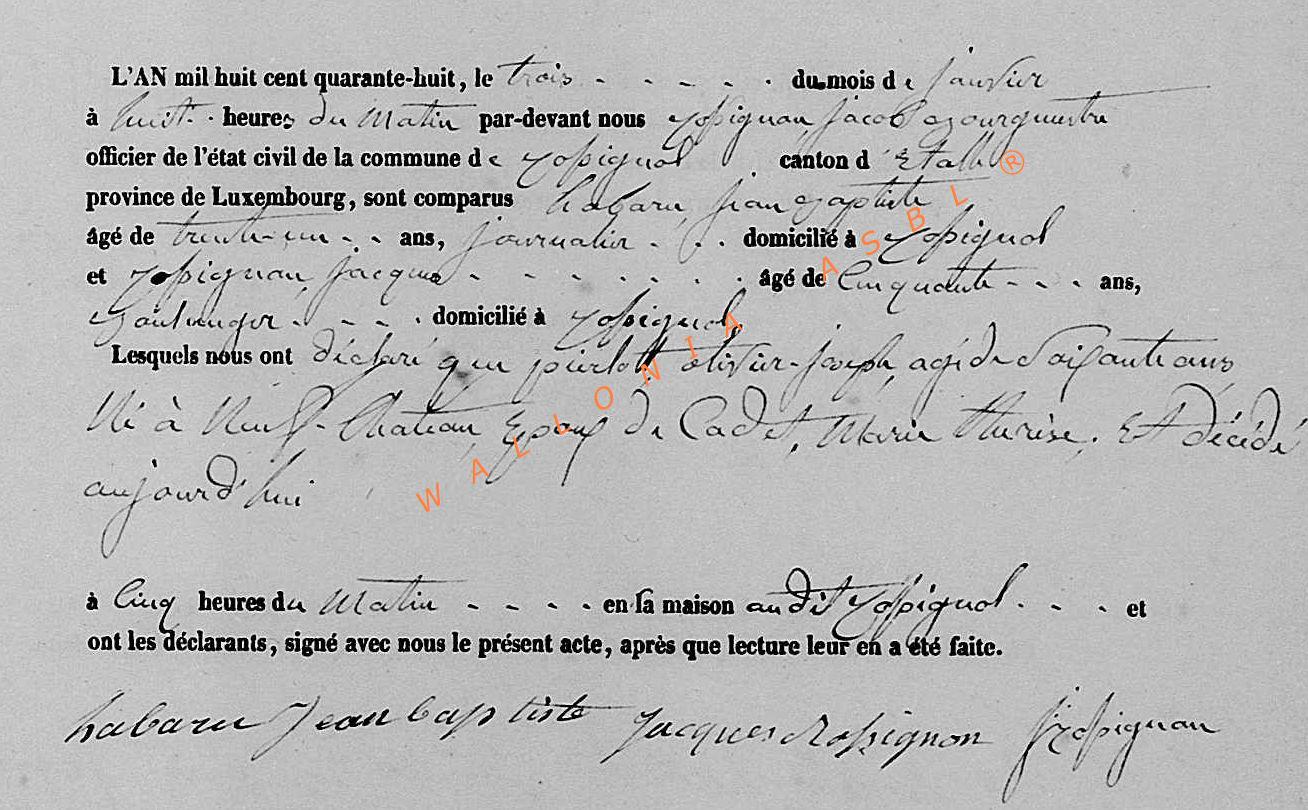 L'AN mil huit cent quarante-huit, le trois - - - - - du mois de janvier
à huit heures du Matin par-devant nous Rossignon, Jacob Bourgmestre
officier de l'état civil de la commune de Rossignol canton d'Etalle
province de Luxembourg, sont comparus habaru, jean Baptiste
âgé de trente-un - - ans, journalier - - - domicilié à Rossignol
et Rossignon, Jacques - - - - - - - âgé de Cinquante - - - ans,
Boulanger - - - - domicilié à Rossignol,
Lesquels nous ont déclaré que pierlot, olivier-joseph, agé de Soixante ans,
Né à Neuf-Chateau, Epoux de Cadet, Marie thérèse, Est décédé
aujourd'hui
à Cinq heures du Matin - - - - en sa maison audit Rossignol - - - et
ont les déclarants, signé avec nous le présent acte, après que lecture leur en a été faite.
habaru Jean baptiste Jacques Rossignon J Rossignon
WALLONIA ASBL ®